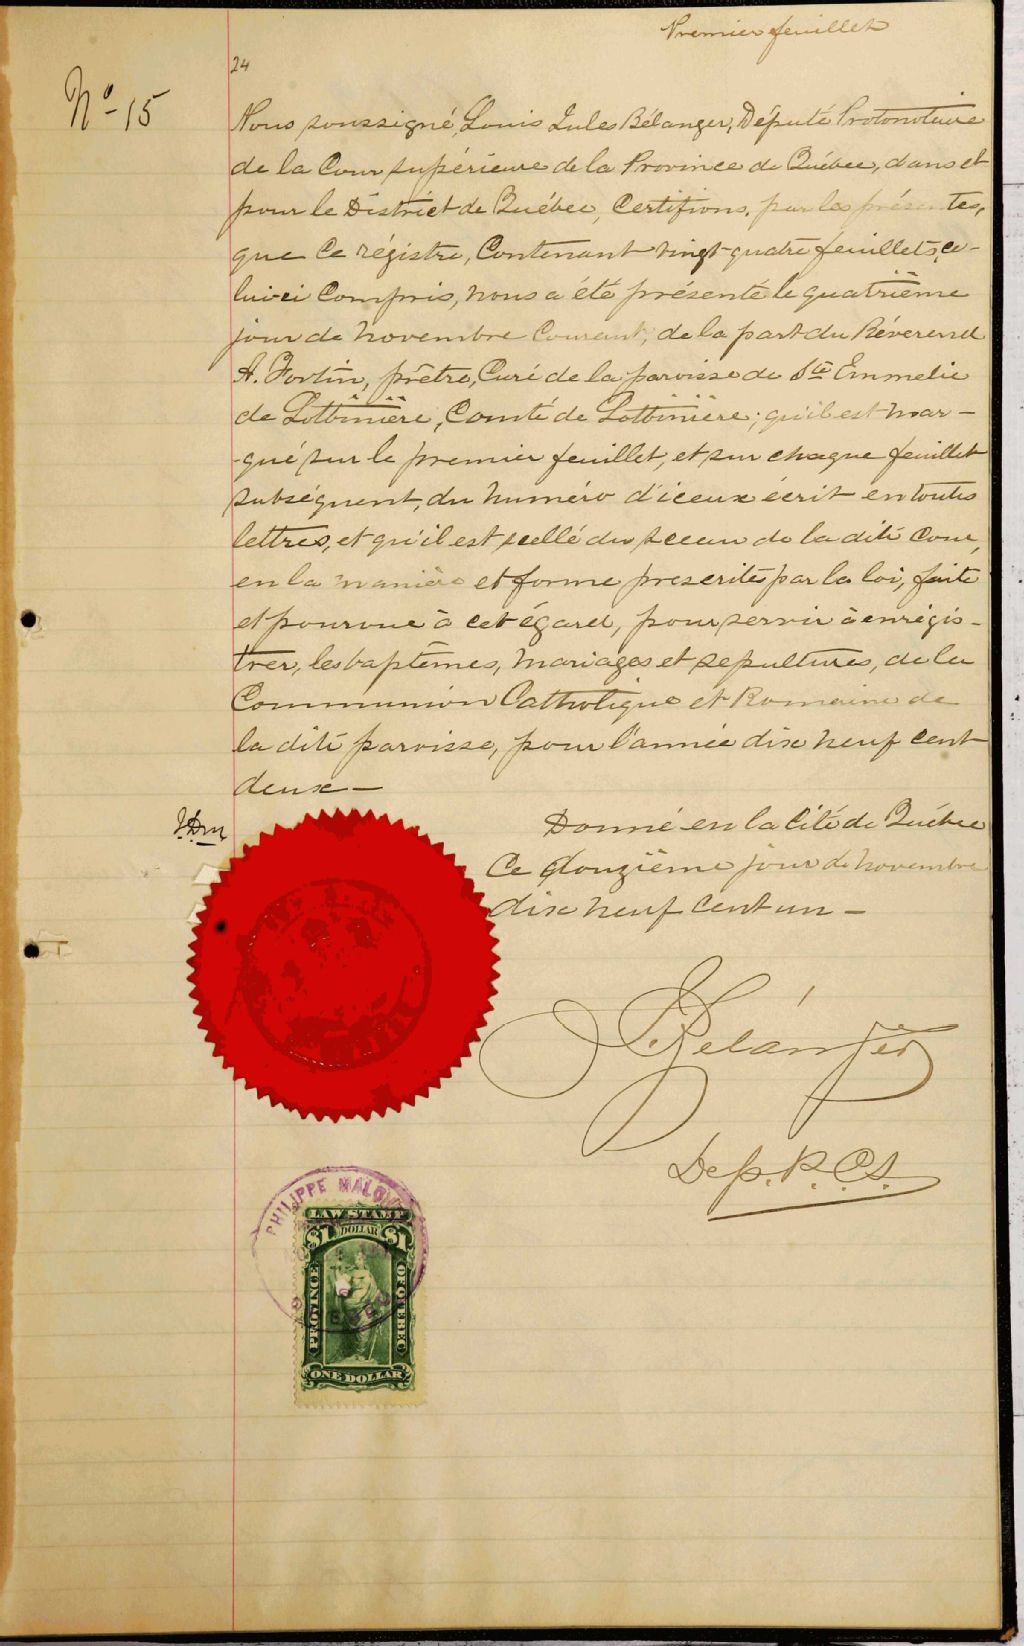 Premier feuillet
24
No 15
Nous soussigné, Louis Jules Bélanger, Député Protonotaire
de la Cour supérieure de la Province de Québec, dans et
pour le District de Québec, Certifions, par les présentes,
que ce régistre, Contenant vingt-quatre feuillets, ce-
lui-ci Compris, nous a été présenté le quatrième
jour de novembre Courant, de la part du Révérend
A. Fortin, prêtre, Curé de la paroisse de Ste Emmelie
de Lotbinière, Comté de Lotbinière; qu'il est mar-
-qué sur le premier feuillet, et sur chaque feuillet
subséquent, du numéro d'iceux écrit en toutes
lettres, et qu'il est scellé du sceau de la dite Cour,
en la manière et forme prescrites par la loi, faite
et pourvue à cet égard, pour servir à enrégis-
trer, les baptêmes, mariages et sépultures, de la
Communion Catholique et Romaine de
la dite paroisse, pour l'année dix neuf cent
deux —
Donné en la Cité de Québec
Ce douzième jour de novembre
dix neuf cent un —
Bélanger
Dep. P. C. S.
PHILIPPE MALO
LAW STAMP
$1 DOLLAR $1
PROVINCE OF QUEBEC
ONE DOLLAR